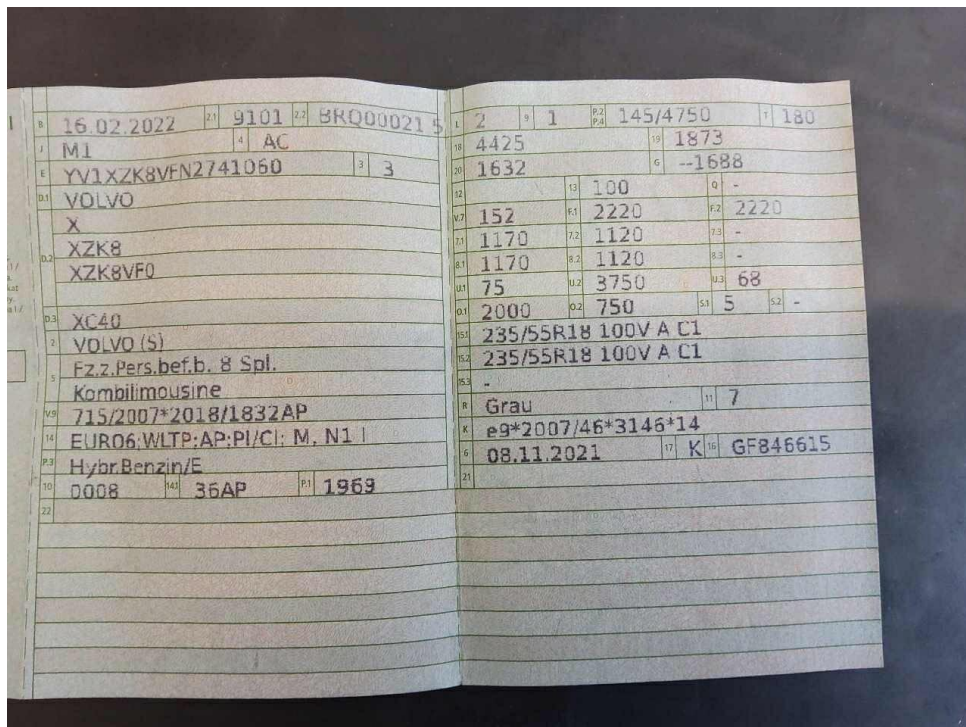 B 16.02.2022 2.1 9101 2.2 BRQ00021 5
J M1 4 AC
E YV1XZK8VFN2741060 3 3
D.1 VOLVO
X
D.2 XZK8
XZK8VF0
D.3 XC40
2 VOLVO (S)
5 Fz.z.Pers.bef.b. 8 Spl.
Kombilimousine
V.9 715/2007*2018/1832AP
14 EURO6;WLTP;AP;PI/CI; M, N1 I
P.3 Hybr.Benzin/E
10 0008 14.1 36AP P.1 1969
22
L 2 9 1 P.2 P.4 145/4750 T 180
18 4425 19 1873
20 1632 G --1688
12 13 100 Q -
V.7 152 F.1 2220 F.2 2220
7.1 1170 7.2 1120 7.3 -
8.1 1170 8.2 1120 8.3 -
U.1 75 U.2 3750 U.3 68
O.1 2000 O.2 750 S.1 5 S.2 -
15.1 235/55R18 100V A C1
15.2 235/55R18 100V A C1
15.3 -
R Grau 11 7
K e9*2007/46*3146*14
6 08.11.2021 17 K 16 GF846615
21